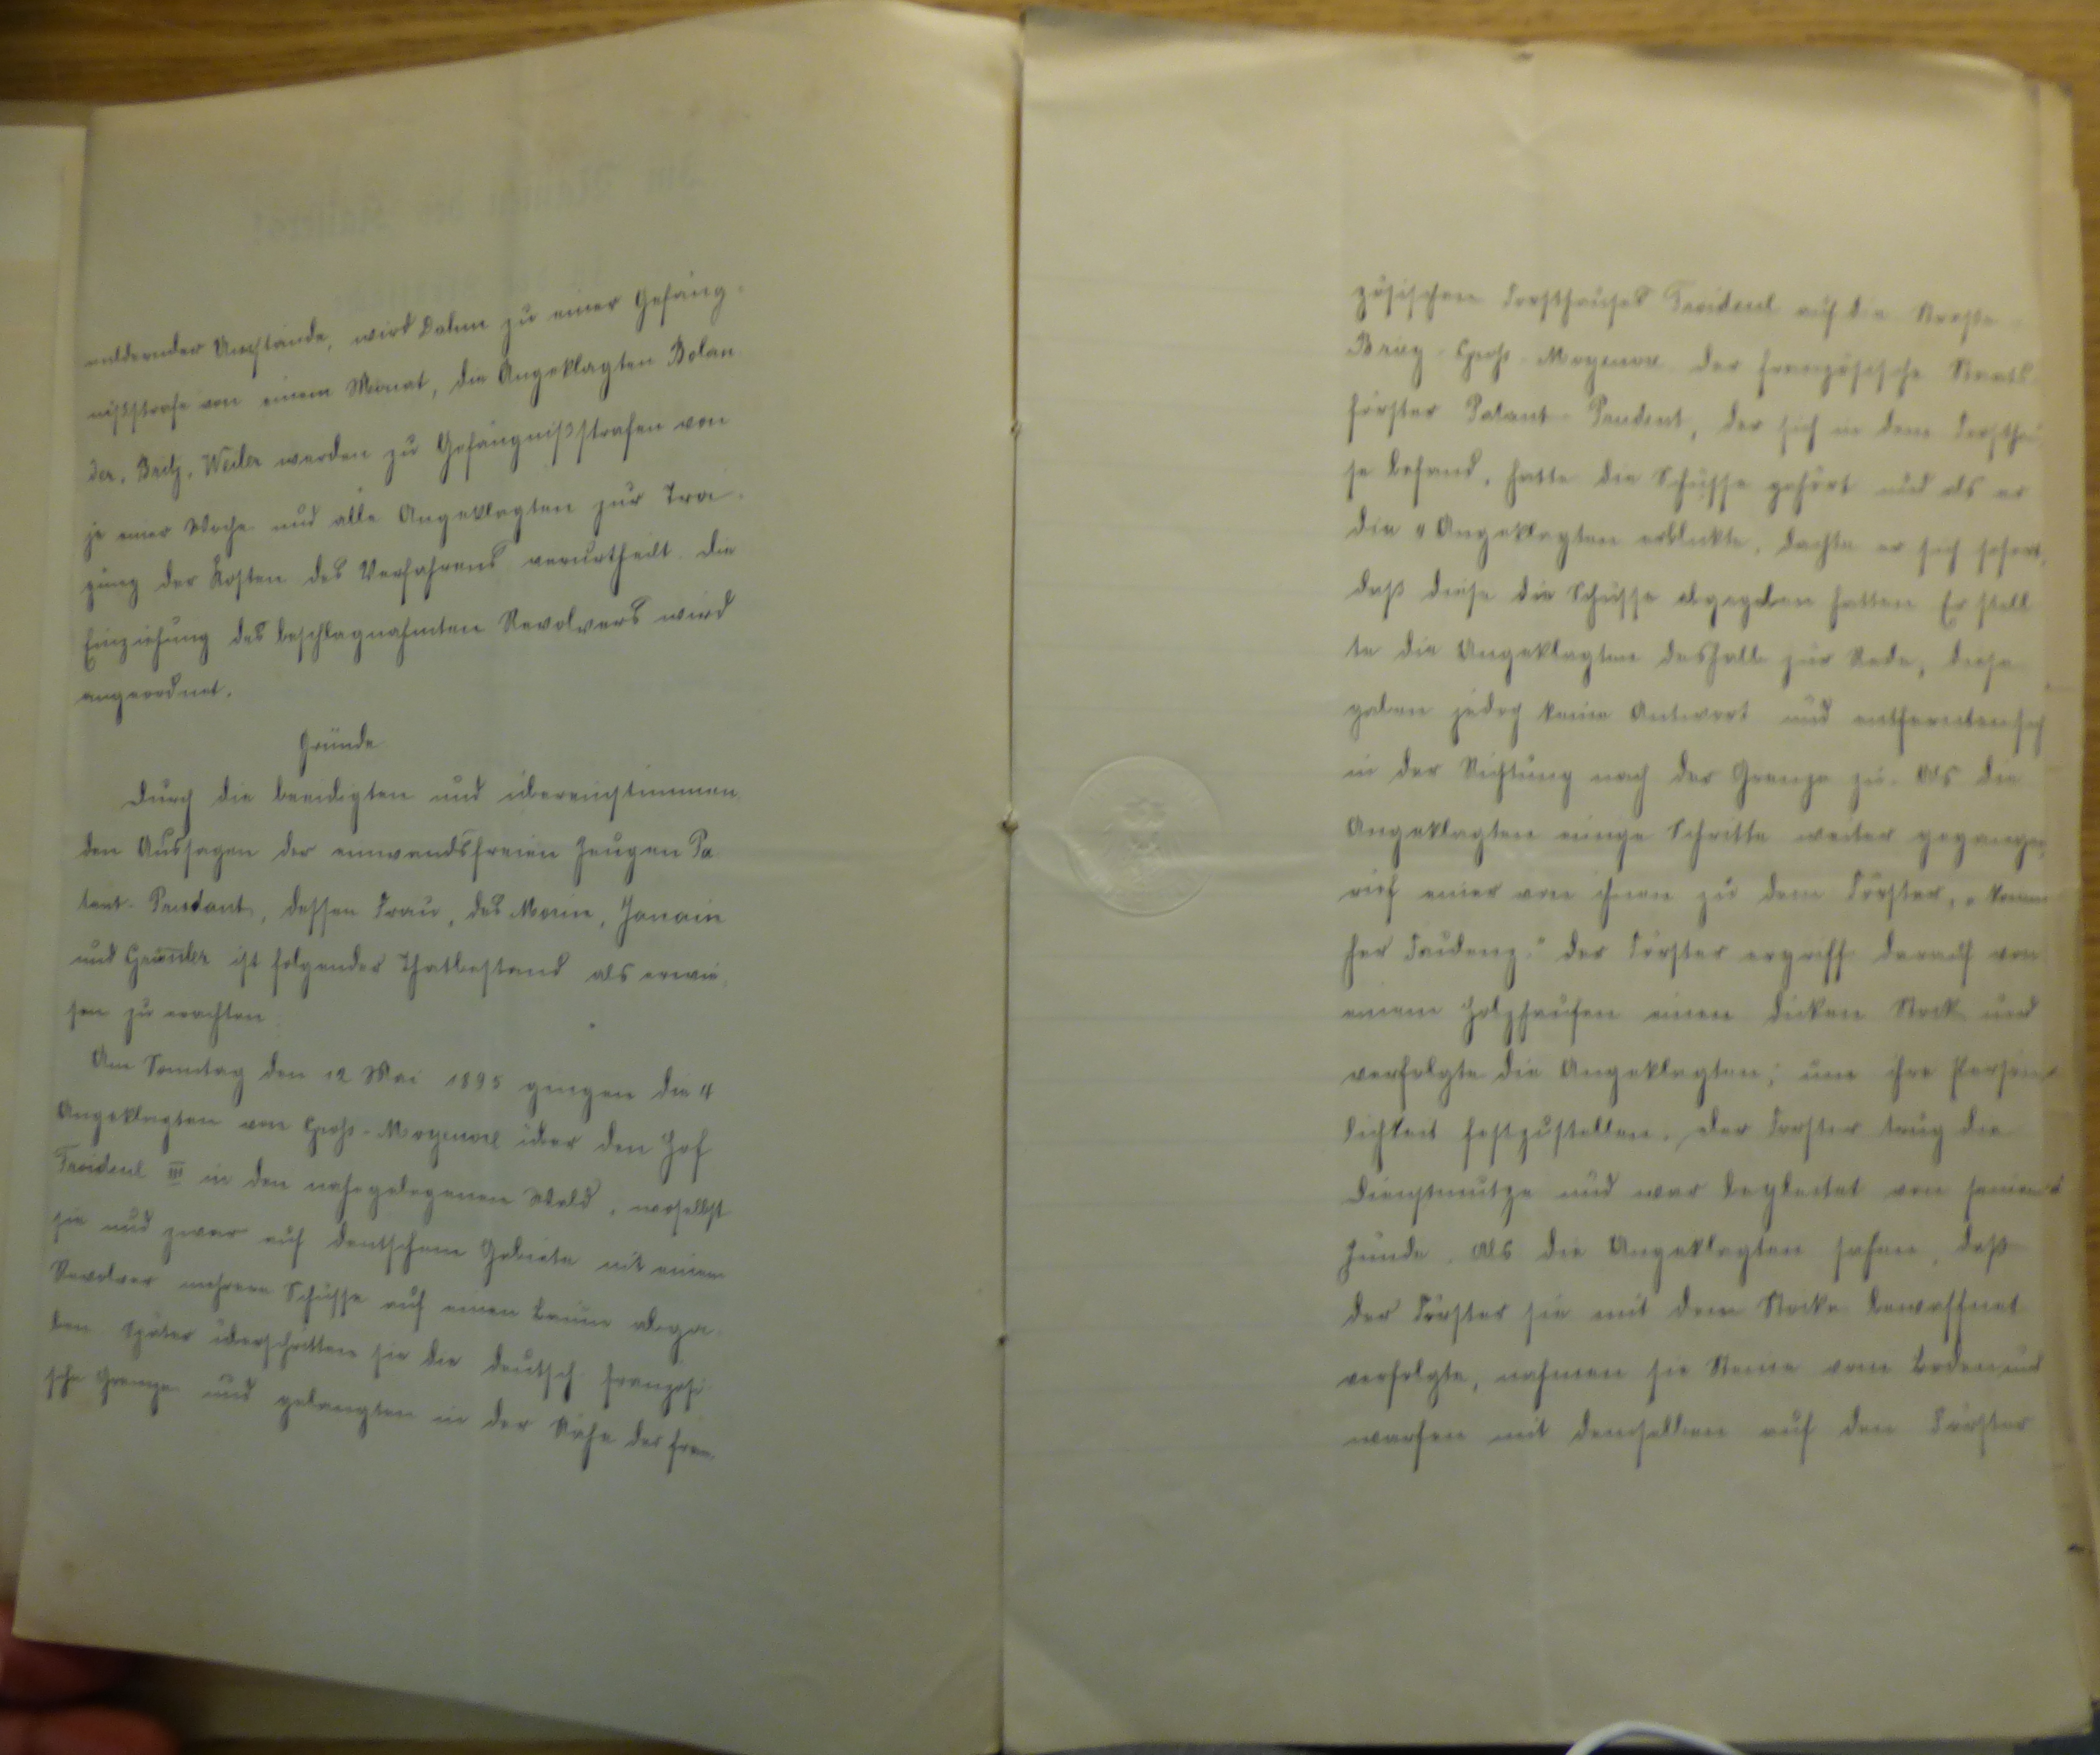 mildernder Umstände, wird Dahm zu einer Gefäng-
nißstrafe von einem Monat, die Angeklagten Bolan
der, Britz, Weiler werden zu Gefängnißstrafen von
je einer Woche und alle Angeklagten zur Tra-
gung der Kosten des Verfahrens verurtheilt. Die
Einziehung des beschlagnahmten Revolvers wird
angeordnet.
Gründe
Durch die beeidigten und übereinstimmen
den Aussagen der einwandsfreien Zeugen Pa
tant-Prudant, dessen Frau, des Morin,
und ist folgender Thatbestand als erwie
sen zu erachten
Am Sonntag den 12 Mai 1895 gingen die 4
Angeklagten von Groß-Moyeuvre über den Hof
Froidcul III in den nahegelegenen Wald, woselbst
sie und zwar auf deutschem Gebiete mit einem
Revolver mehrere Schüsse auf einen Baum abga-
ben Später überschritten sie die deutsch französi
sche Grenze und gelangten in der Nähe des fran-
zösischen Forsthauses Froidcul auf die Straße
Briey-Groß-Moyeuvre der französische Staats
förster Patant-Prudent, der sich in dem Forsthau
se befand, hatte die Schüsse gehört und als er
die 4 Angeklagten erblickte, dachte er sich sofort,
daß diese die Schüsse abgegeben hatten Er stell
te die Angeklagten deshalb zur Rede, diese
gaben jedoch keine Antwort und entfernten sich
in der Richtung nach der Grenze zu. Als die
Angeklagten einige Schritte weiter gegangen,
rief einer von ihnen zu dem Förster, „komm
her Faulenz." der Förster ergriff darauf von
einem Holzhaufen einen dicken Stock und
verfolgte die Angeklagten, um ihre Persön-
lichkeit festzustellen, der Förster trug die
Dienstmütze und war begleitet von seinem
Hunde. Als die Angeklagten sahen, daß
der Förster sie mit dem Stocke bewaffnet
verfolgte, nahmen sie Steine vom Boden und
warfen mit denselben auf den Förster